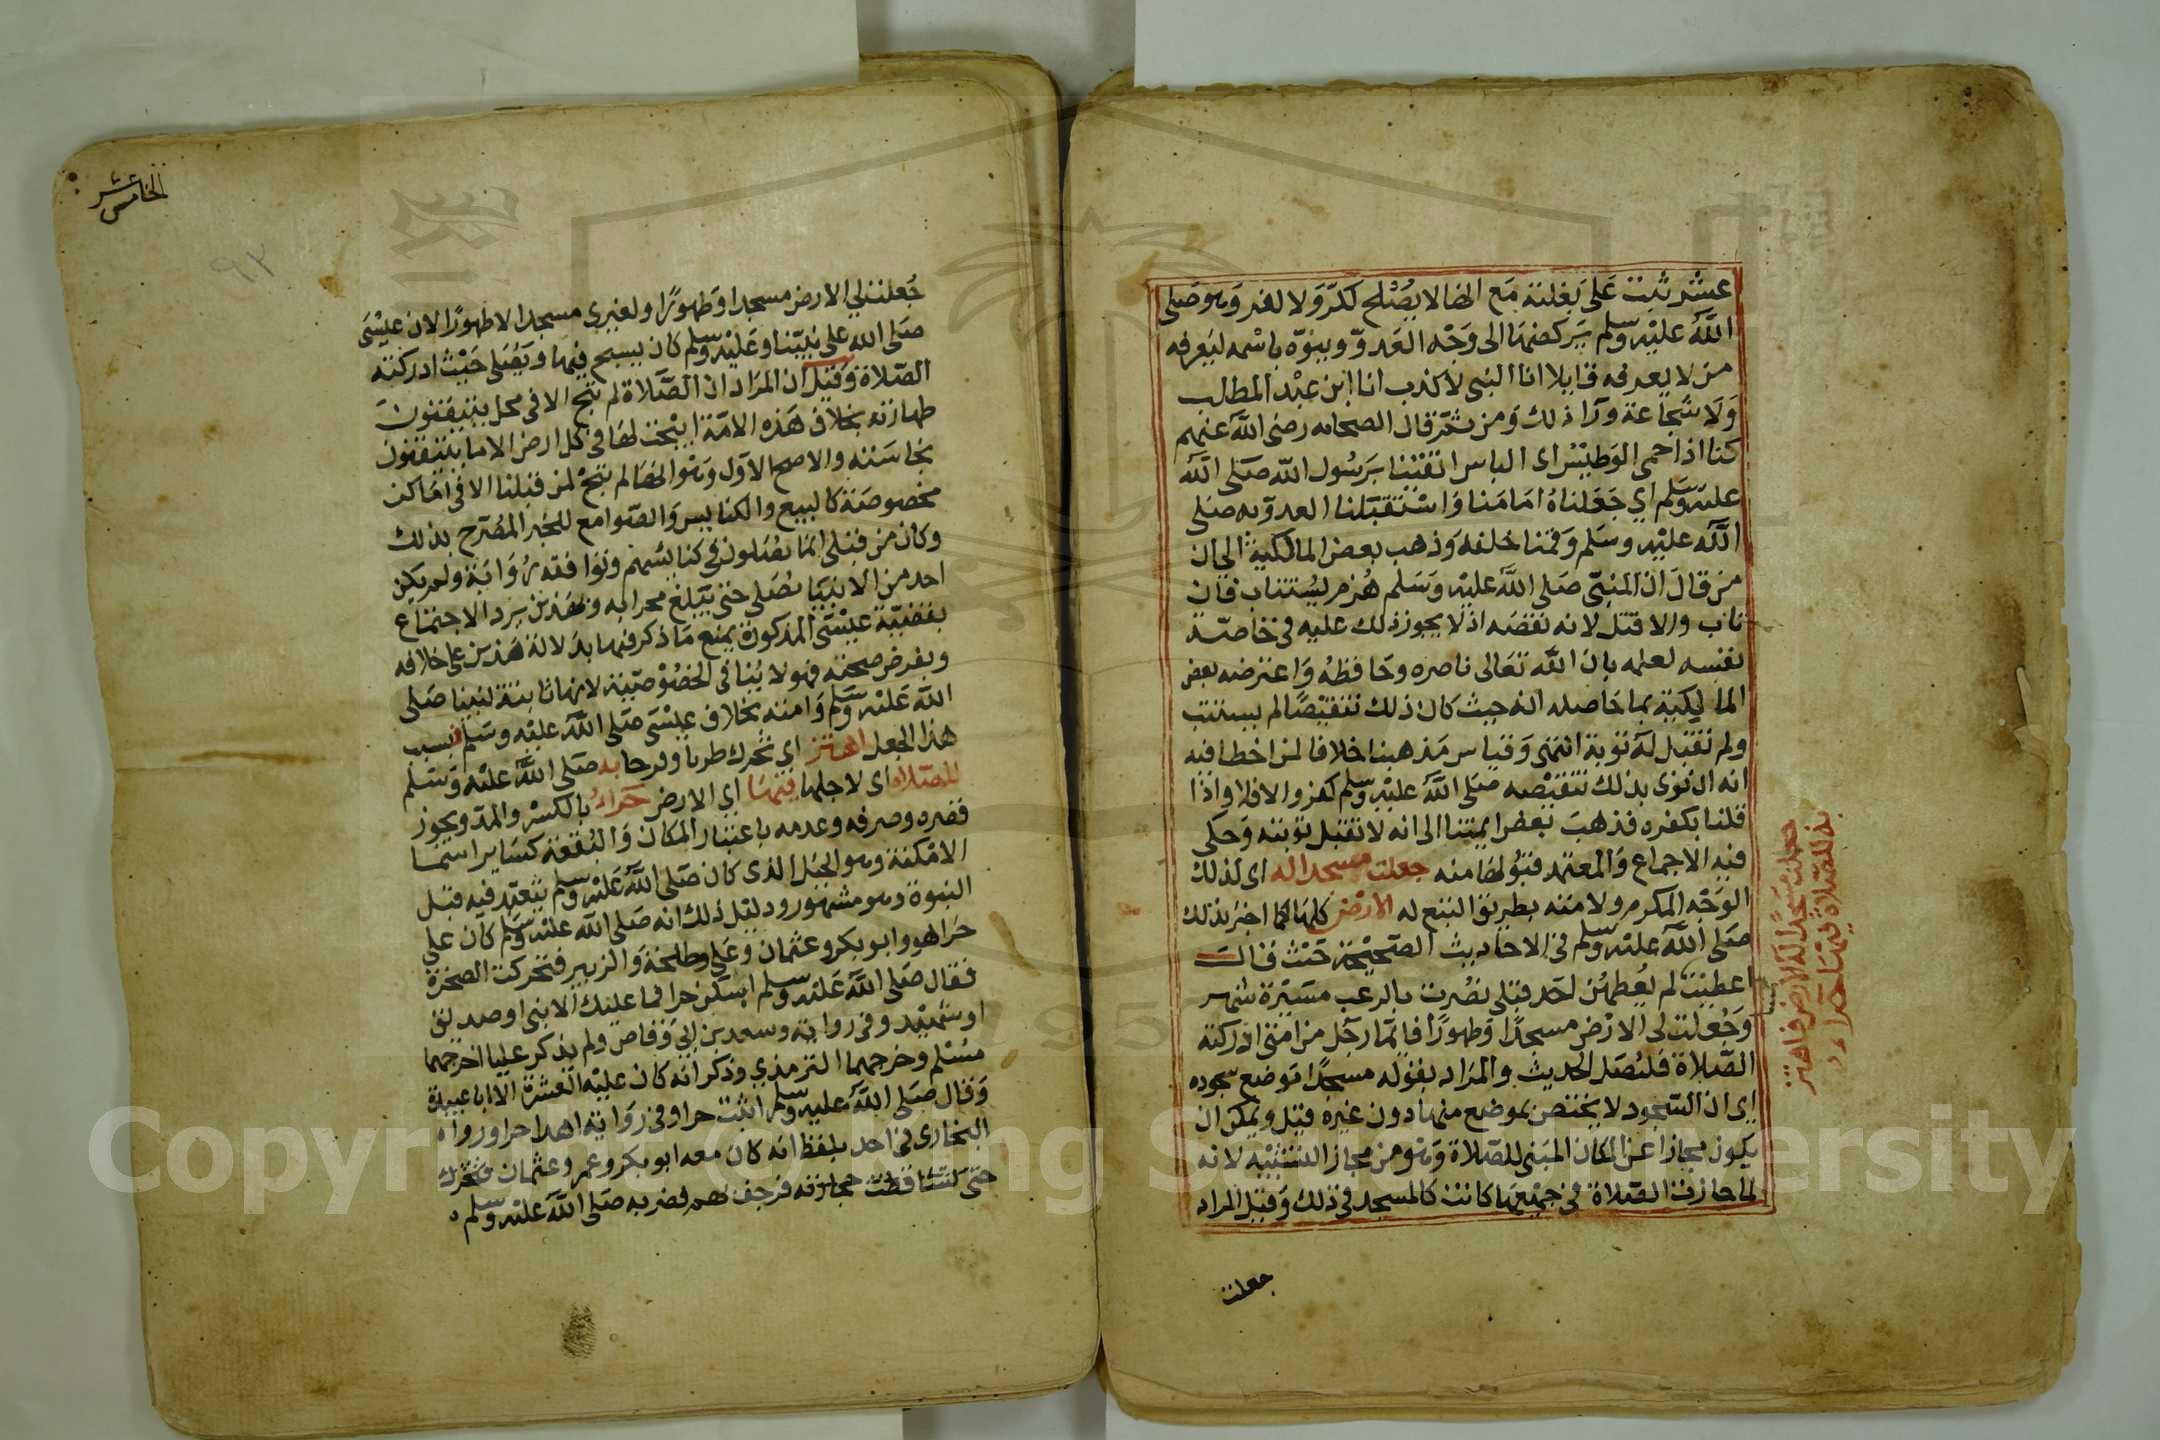 عشر ثبت على بغلته مع انها لا يصلح لكر ولا لفر وهو صلى
الله عليه وسلم يركضها الى وجه العدو وينوه باسمه ليعرفه
من لا يعرفه قايلا انا النبي لا كذب انا ابن عبد المطلب
ولا شجاعة ورآ ذلك ومن ثم قال الصحابه رضي الله عنهم
كنا اذا حمي الوطيس اى الباس اتقينا برسول الله صلى الله
عليه وسلم اي جعلناه امامنا واستقبلنا العدو به صلى
الله عليه وسلم وقمنا خلفه وذهب بعض المالكية الى ان
من قال ان النبي صلى الله عليه وسلم هزم يستتاب فان
تاب والا قتل لانه نقصه اذ لا يجوز ذلك عليه في خاصة
نفسه لعلمه بان الله تعالى ناصره وحافظه واعترضه بعض
المالكية بما حاصله انه حيث كان ذلك تنقيصا لم يستتب
ولم تقبل له توبة انتهى وقياس مذهبنا خلافا لمن اخطا فيه
انه ان نوى بذلك تنقيصه صلى الله عليه وسلم كفر والا فلا واذا
قلنا بكفره فذهب بعض ايمتنا الى انه لا تقبل توبته وحكى
فيه الاجماع والمعتمد قبولها منه جعلت مسجدا له اى لذلك
الوجه المكرم ولامته بطريق التبع له الارض كلها كما اخبر بذلك
صلى الله عليه وسلم في الاحاديث الصحيحة حيث قال
اعطيت لم يعطهن احد قبلي نصرت بالرعب مسيرة شهر
وجعلت لي الارض مسجدا وطهورا فايما رجل من امتي ادركته
الصلاة فليصل الحديث والمراد بقوله مسجدا موضع سجوده
اى ان السجود لا يختص بموضع منها دون غيره قيل ويمكن ان
يكون مجازا عن المكان المبني للصلاة وهو من مجاز التشبيه لانه
لما جازت الصلاة في جميعها كانت كالمسجد في ذلك وقيل المراد
جعلت
جعلت مسجدا له الارض فاهتز
به للصلاة فيها حراء
الخامس عشر
٩٢
جعلت لي الارض مسجدا وطهورا ولغيري مسجدا لا طهورا لان عيسى
صلى الله على نبينا وعليه وسلم كان يسيح فيها ويصلى حيث ادركته
الصلاة وقيل ان المراد ان الصلاة لم تبح الا في محل يتيقنون
طهارته بخلاف هذه الامة ابيحت لها في كل ارض الا ما يتيقنون
نجاسته والاصح الاول وهو انها لم تبح لمن قبلنا الا في اماكن
مخصوصة كالبيع والكنايس والصوامع للخبر المصرح بذلك
وكان من قبلى انما يصلون في كنايسهم وتوافقه رواية ولم يكن
احد من الانبيا يصلى حتى يبلغ محرابه وبهذين يرد الاجتماع
بقضية عيسى المذكورة يمنع ما ذكر فيها بدلالة هذين على خلافه
وبفرض صحته فهو لا ينافى الخصوصية لانها ثابتة لنبينا صلى
الله عليه وسلم وامته بخلاف عيسى صلى الله عليه وسلم فبسبب
هذا الجعل اهتز اي تحرك طربا وفرحا به صلى الله عليه وسلم
للصلاة اى لاجلها فيها اي الارض حراء بالكسر والمد ويجوز
قصره وصرفه وعدمه باعتبار المكان والبقعة كساير اسما
الامكنة وهو الجبل الذى كان صلى الله عليه وسلم يتعبد فيه قبل
النبوة وهو مشهور ودليل ذلك انه صلى الله عليه وسلم كان على
حرا هو وابو بكر وعثمان وعلى وطلحة والزبير فتحركت الصخرة
فقال صلى الله عليه وسلم اسكن حرا فما عليك الا نبى او صديق
او شهيد وفى رواية وسعد بن ابي وقاص ولم يذكر عليا اخرجهما
مسلم وخرجهما الترمذي وذكر انه كان عليه العشرة الا ابا عبيدة
وقال صلى الله عليه وسلم اثبت حرا وفى رواية اهدا حرا ورواه
البخارى فى احد بلفظ انه كان معه ابو بكر وعمر وعثمان فتحرك
حتى تساقطت حجارته فرجف بهم فضربه صلى الله عليه وسلم
Copyright © King Saud University
1957